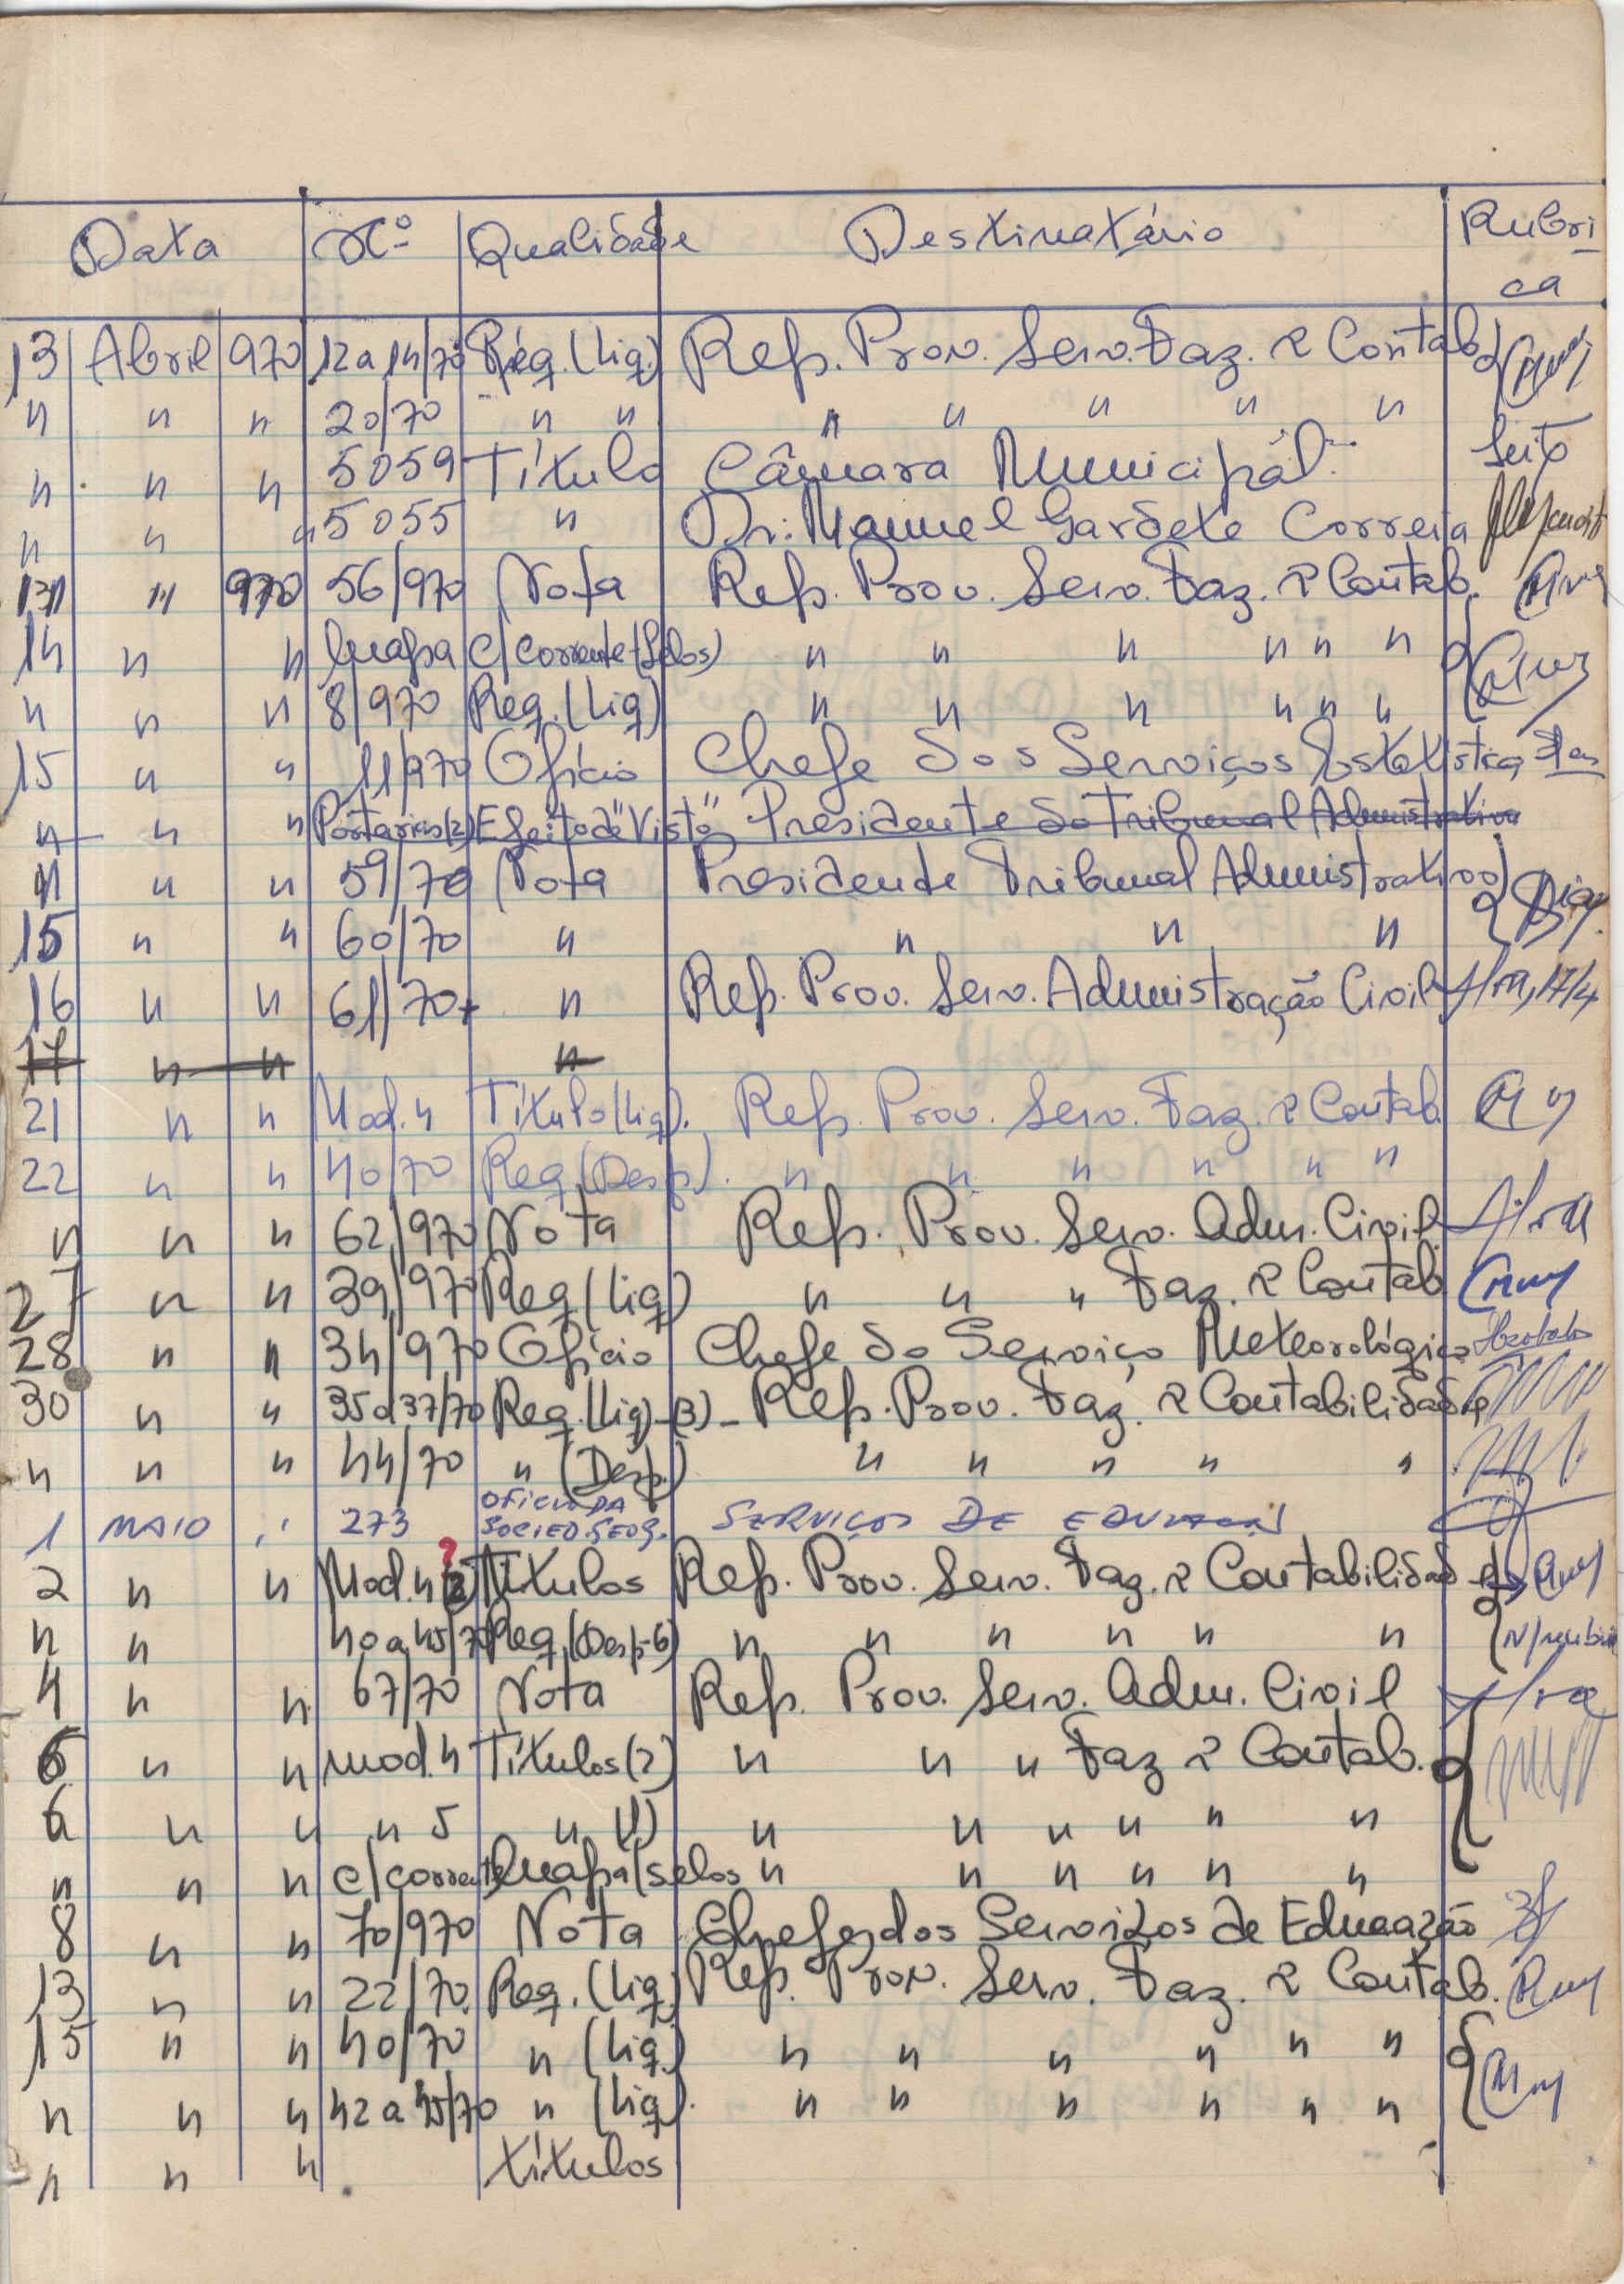 Data Nº Qualidade Destinatário Rubri-
ca
13 Abril 970 12 a 14/70 Req. (Liq.) Rep. Prov. Serv. Faz. e Contab.
" " " 20/70 " " " " " " "
" " " 5059 Título Câmara Municipal
" " " 5055 " Dr. Manuel Gardete Correia
" " 970 56/970 Nota Rep. Prov. Serv. Faz. e Contab.
14 " " Mapa c/corrente (Selos) " " " " " "
" " " 8/970 Req. (Liq) " " " " " "
15 " " 11/970 Ofício Chefe dos Serviços Estatística
" " " Portarias (2) Efeito de "Visto" Presidente do Tribunal Administrativo
" " " 59/70 Nota Presidente Tribunal Administrativo
15 " " 60/70 " " " "
16 " " 61/70 " Rep. Prov. Serv. Administração Civil 17/4
17 " " "
21 " " Mod. 4 Título (Liq). Rep. Prov. Serv. Faz. e Contab.
22 " " 40/70 Req (Desp). " " " " " "
" " " 62/970 Nota Rep. Prov. Serv. Adm. Civil
27 " " 39/970 Req (Liq) " " " Faz. e Contab
28 " " 34/970 Ofício Chefe do Serviço Meteorológico
30 " " 35 a 37/70 Req. (Liq) - (3) - Rep. Prov. Faz. e Contabilidade
" " " 44/70 " (Desp.) " " " " "
1 MAIO " 273 OFICIO DA SOCIED. GEOG. SERVIÇOS DE EDUCAÇÃO
?
2 " " Mod. 4 (2) Títulos Rep. Prov. Serv. Faz. e Contabilidade
" " 40 a 45/70 Req. (Desp-6) " " " " " "
4 " " 67/70 Nota Rep. Prov. Serv. Adm. Civil
6 " " mod. 4 Títulos (2) " " " Faz e Contab.
6 " " " 5 " (1) " " " " " "
" " " c/corrente Mapa/selos " " " " " "
8 " " 70/970 Nota Chefe dos Serviços de Educação
13 " " 22/70 Req. (Liq.) Rep. Prov. Serv. Faz. e Contab.
15 " " 40/70 " (Liq.) " " " " " "
" " " 42 a 45/70 " (Liq). " " " " " "
" " " títulos